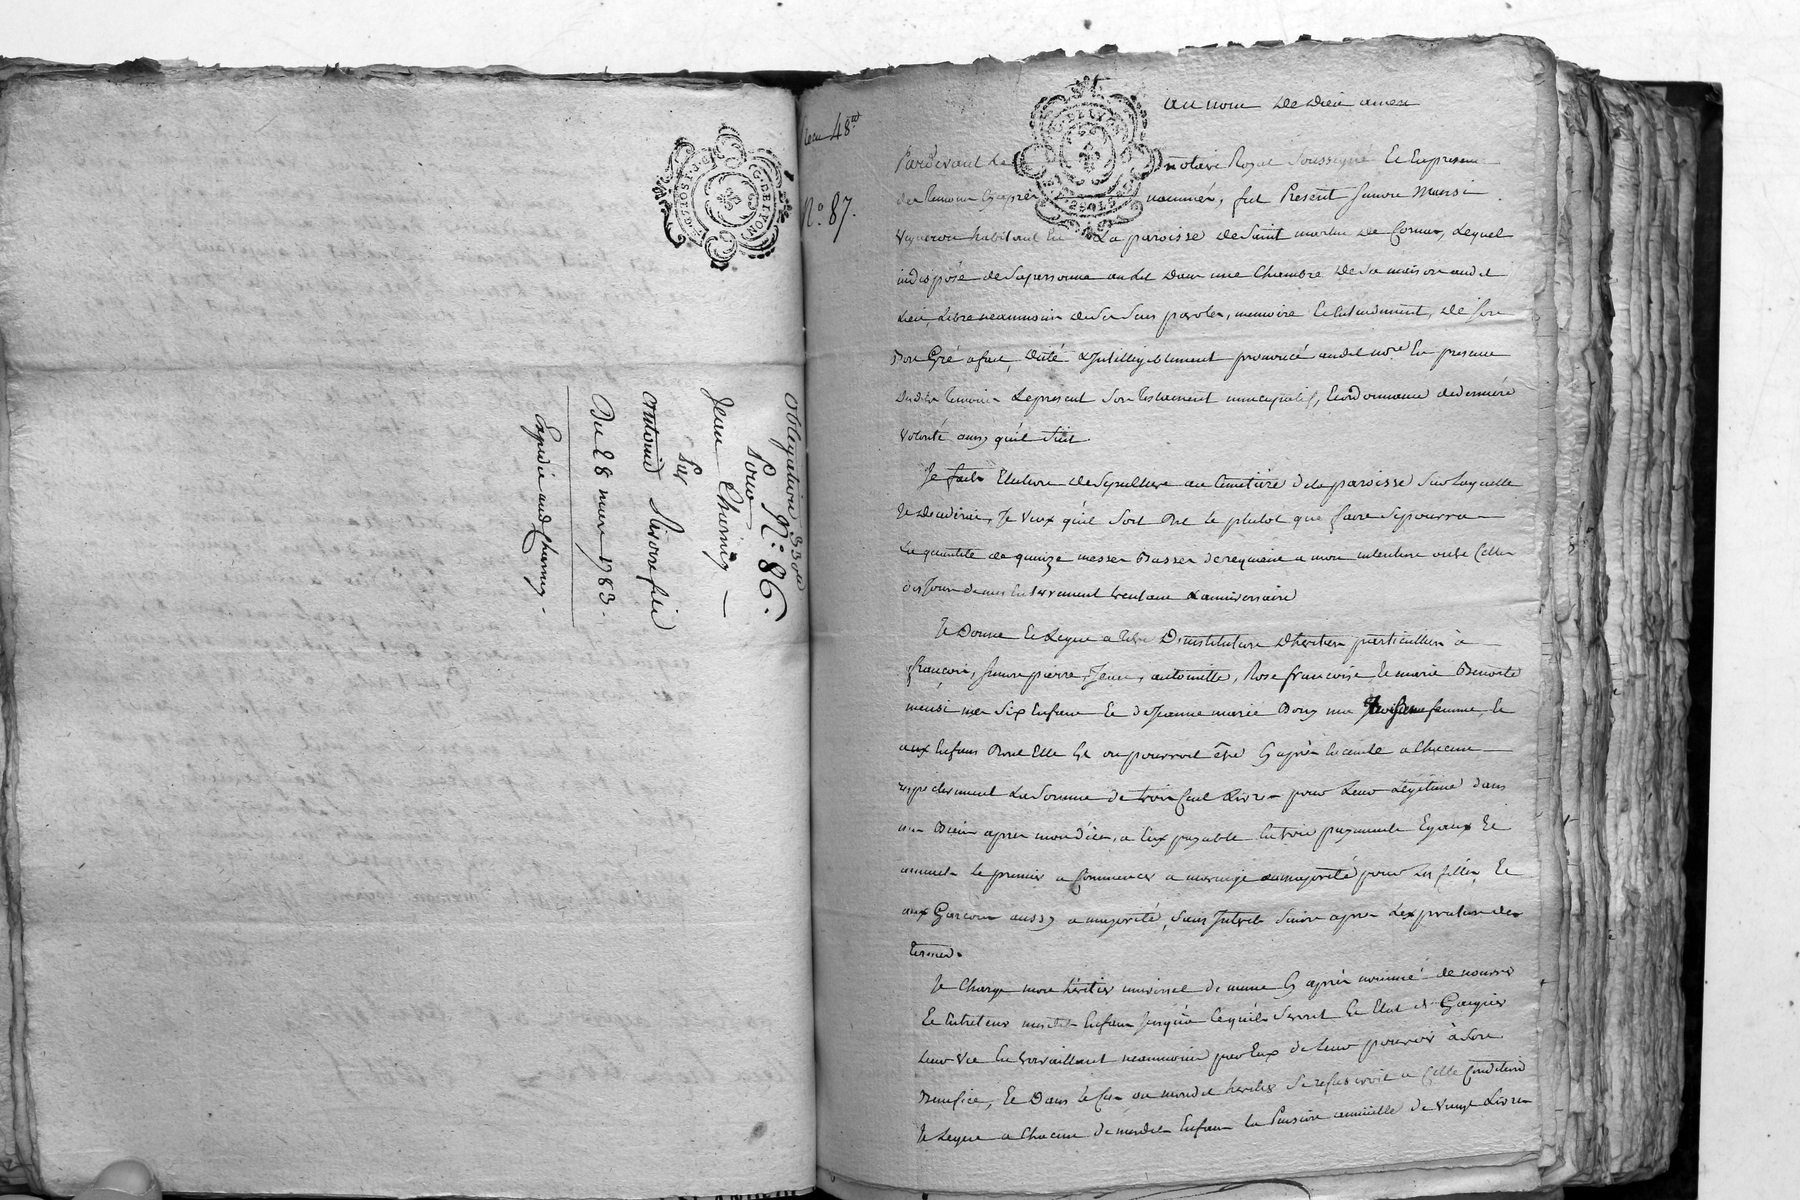 Obligation 33
N.° 86.
Pour
Jean Charmey
Par
antoine fils
Du 28 mars 1783.
Expédié aud. Charmey.
G. DE LYON
N.° 87.
au nom de dieu amen
Pardevant Le notaire Royal Soussigné Et En presence
des Temoins Cy après nommés, fut Present Simon Mensi
Vigneron habitant En La paroisse de Saint martin De Cornas, Lequel
indisposé de Sa personne au Lit dans une Chambre De Sa maison audit
Lieu, Libre neanmoins de Ses Sens parole, memoire Et Entendement, de Son
Bon Gré a fait, dicté & Intelligiblement prononcé audit no.re En presence
Desdits Temoins Le present Son testament nuncupatif, Et ordonnance de derniere
Volonté ainsy qu'il Suit.
Je fais Election de Sepulture au Cimetiére de la paroisse Sur Laquelle
Je decederai, Je Veux qu'il Soit Dit le plutot que faire Se pourra
La quantité de quinze messes Basses de requiem a mon intention outre Celles
des Jours de mes Enterrement trentaine & anniversaire
Je Donne Et Legue a titre D'institution D'heritiers particuliers à
françois, Simon pierre, Jean, antoinette, Rose françoise Et marie Benoite
mensi mes Six Enfans Et de Jeanne marie Bony ma femme, Et
aux Enfans Dont Elle Est ou pourroit être Cy après Enceinte a Chacun
respectivement La Somme de trois Cent Livres pour Leur Légitime dans
mes Biens apres mon décès, a Eux payable En trois payements Egaux Et
annuels Le premier a Commencer a mariage ou majorité pour Les filles, Et
aux Garçons aussy a majorité, Sans Interets Sinon apres L'expiration des
termes.
Je Charge mon héritier universel De meme Cy après nommé de nourrir
Et Entretenir mesdits Enfans Jusqu'a Ce qu'ils Seront En Etat de Gagner
Leur Vie En travaillant neanmoins par Eux de Leur pouvoir à Son
Benefice, Et Dans le Cas ou mondit heritier Se refuseroit a Cette Condition
Je Legue a Chacun De mesdits Enfans La Pension annuelle De Vingt Livres